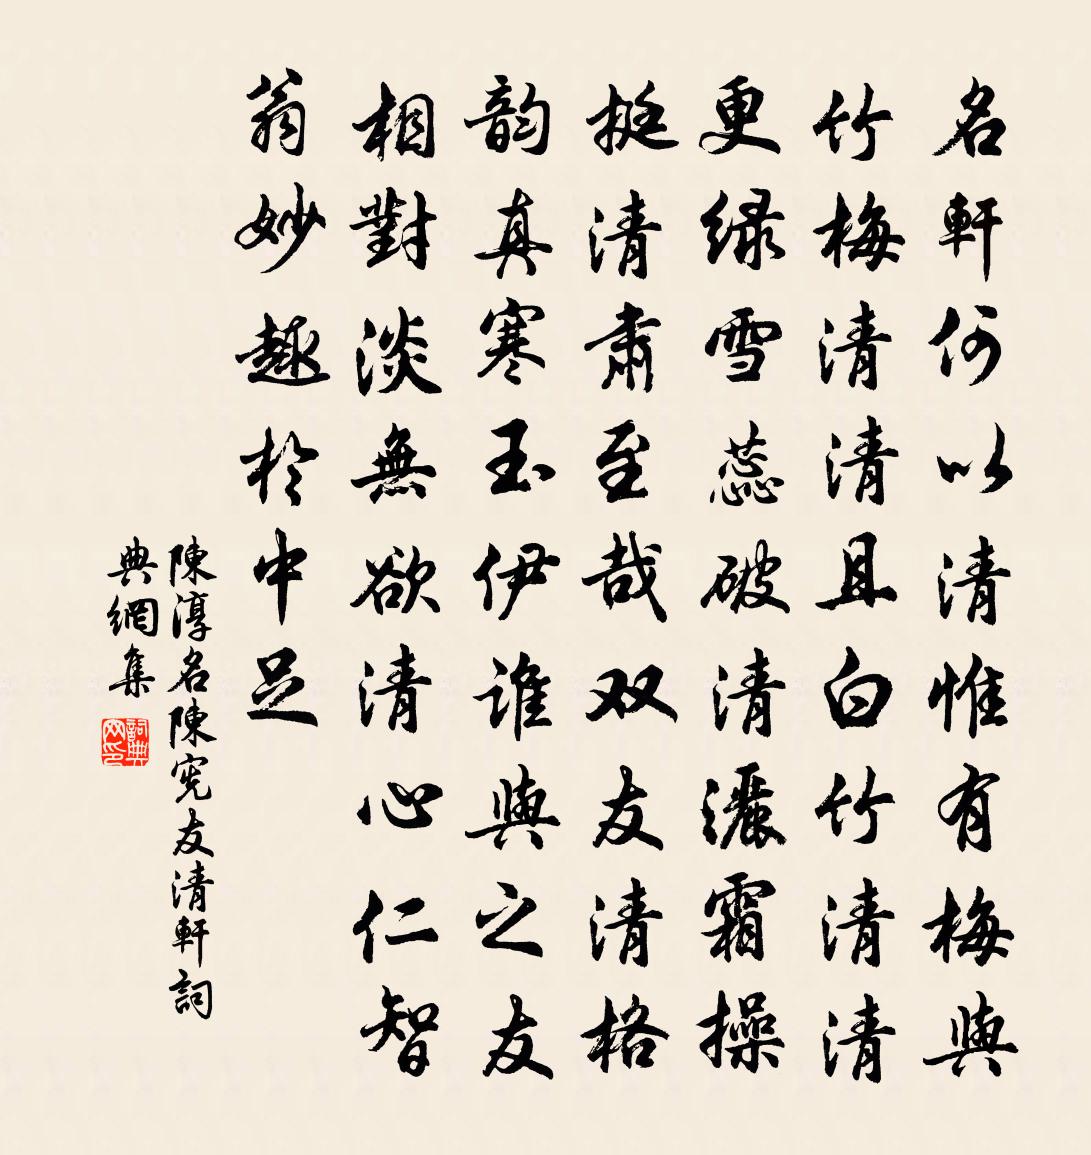 名軒何以清惟有梅與
竹梅清清且白竹清清
更绿雪蕊破清灑霜操
挺清肅至哉双友清格
韵真寒玉伊谁與之友
相對淡無欲清心仁智
翁妙趣於中足
陳淳名陳宪友清軒詞
典網集
詞典网印